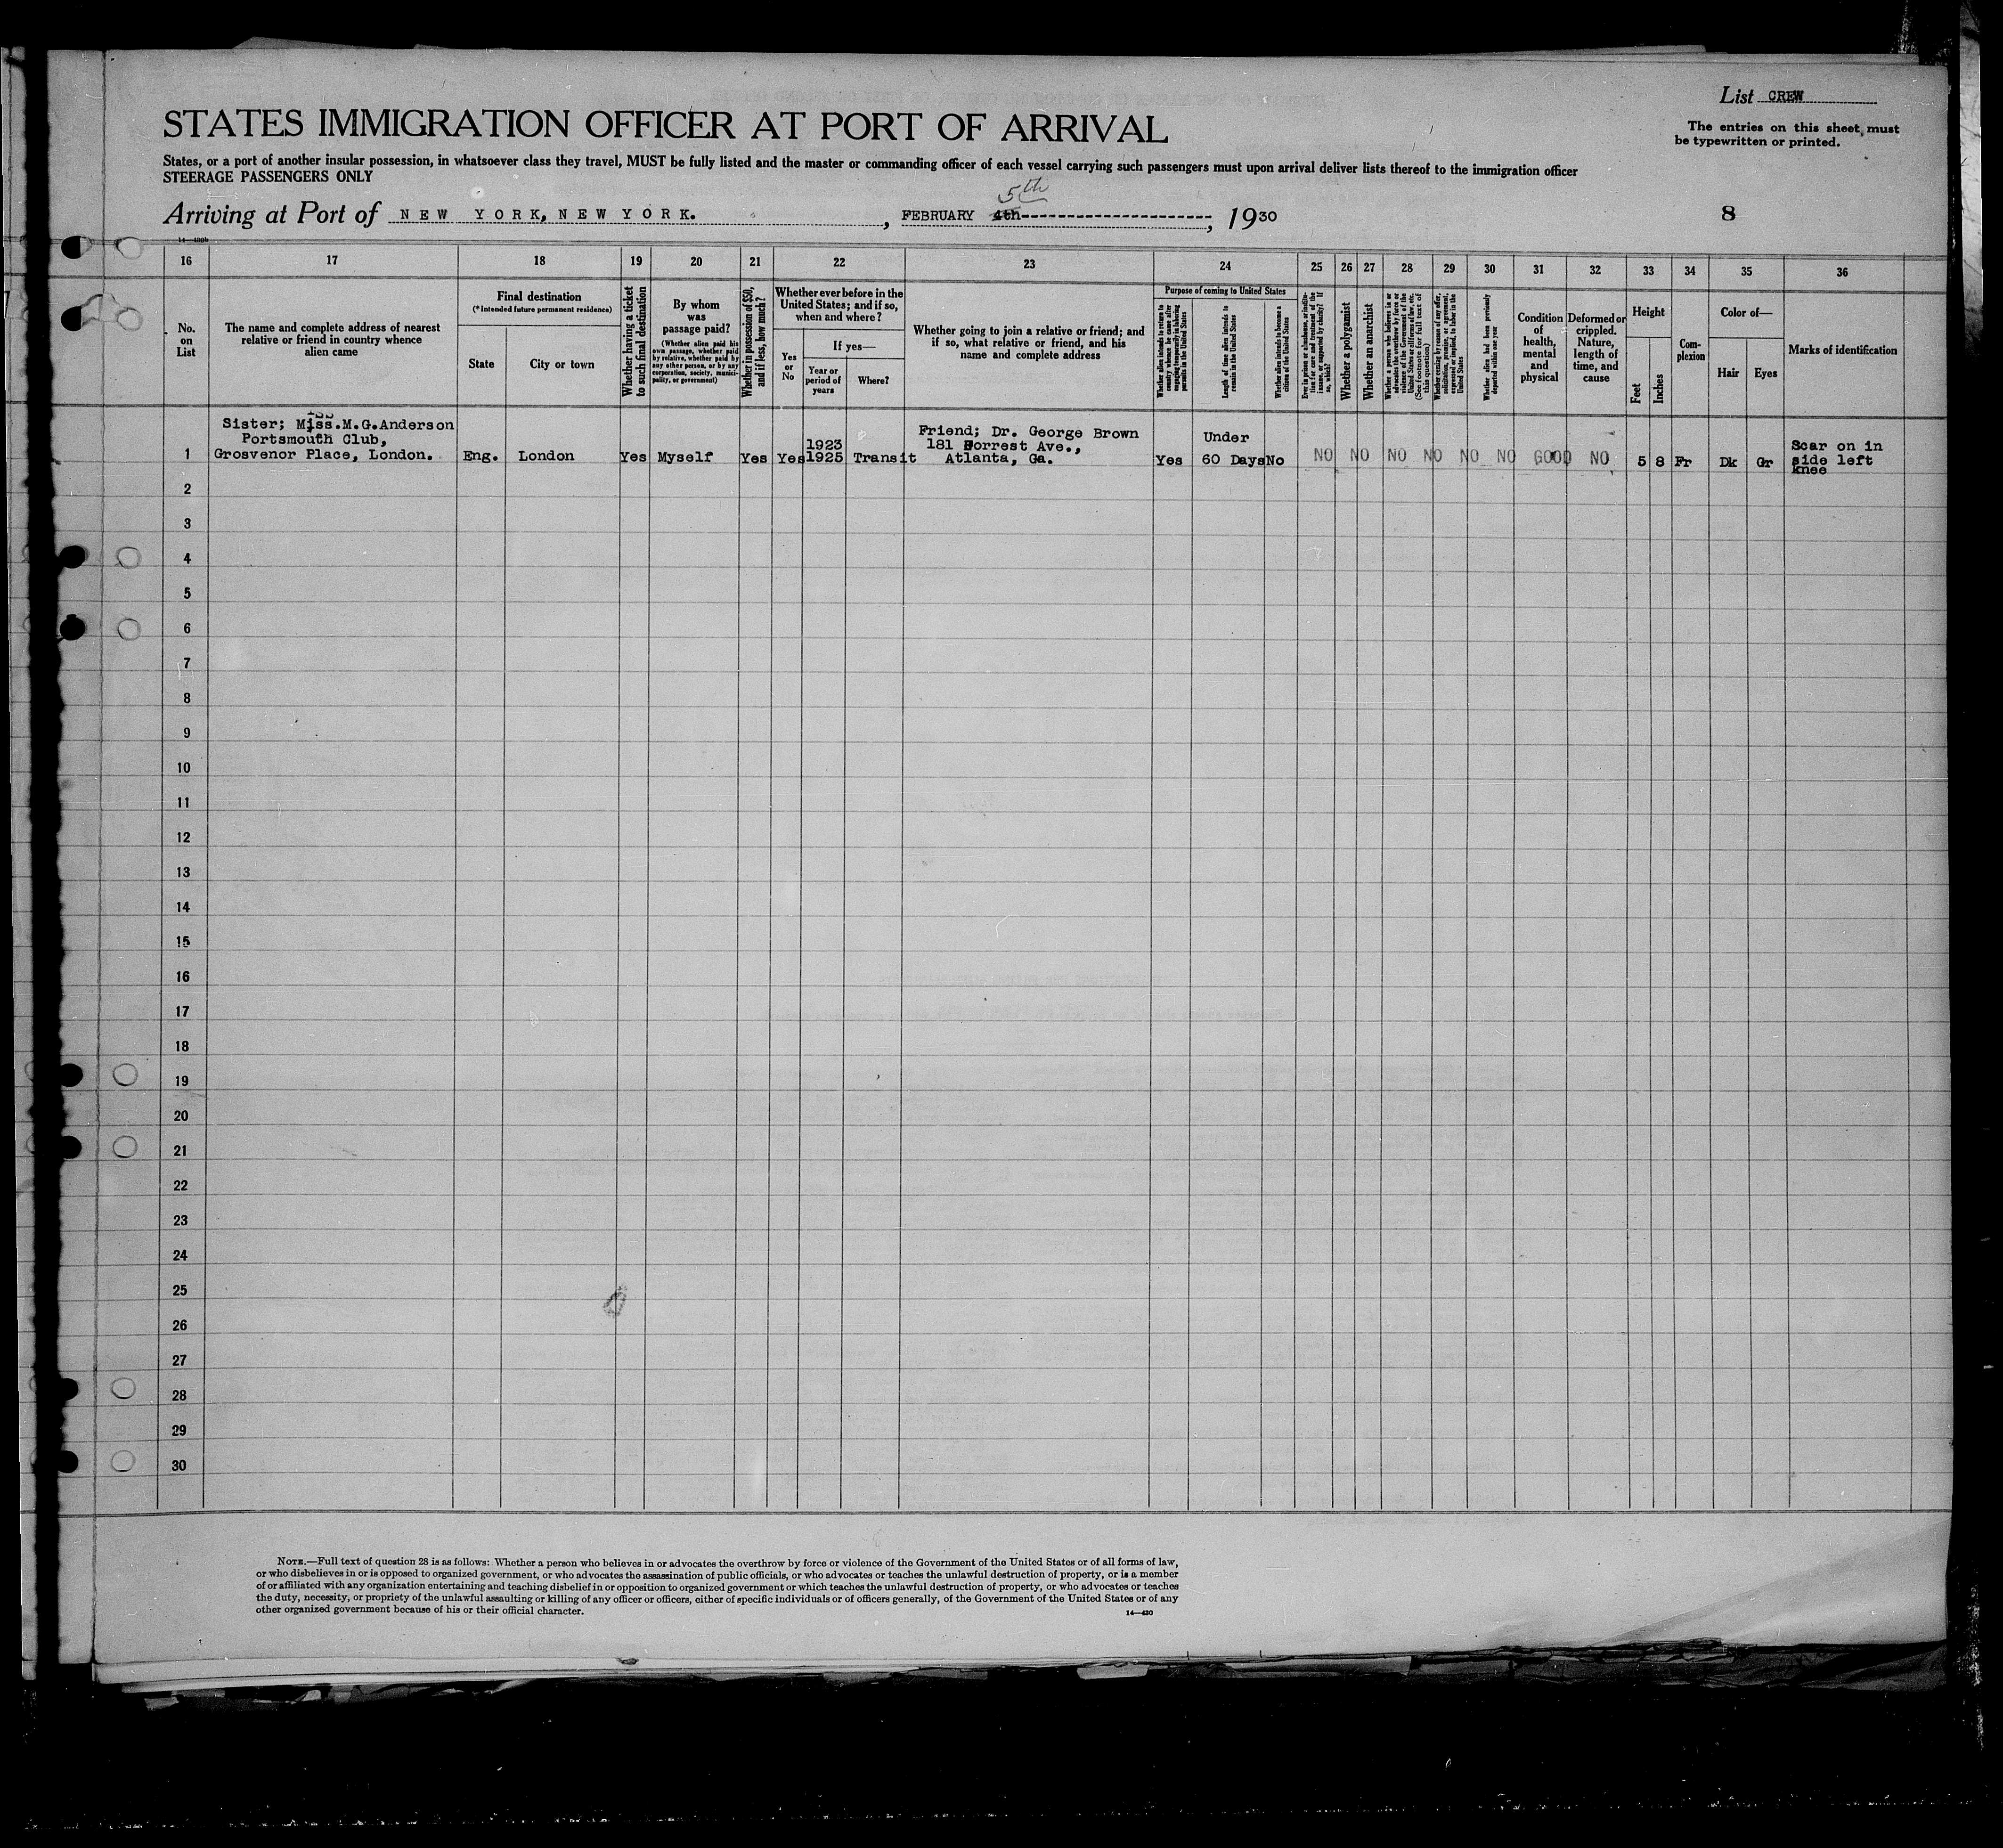 List CREW
The entries on this sheet must
be typewritten or printed.
STATES IMMIGRATION OFFICER AT PORT OF ARRIVAL
States, or a port of another insular possession, in whatsoever class they travel, MUST be fully listed and the master or commanding officer of each vessel carrying such passengers must upon arrival deliver lists thereof to the immigration officer
STEERAGE PASSENGERS ONLY
5th
Arriving at Port of NEW YORK, NEW YORK., FEBRUARY 4th, 1930
8
16 17 18 19 20 21 22 23 24 25 26 27 28 29 30 31 32 33 34 35 36
No.
on
List
The name and complete address of nearest
relative or friend in country whence
alien came
Final destination
(*Intended future permanent residence)
State
City or town
Whether having a ticket
to such final destination
By whom
was
passage paid?
(Whether alien paid his
own passage, whether paid
by relative, whether paid by
any other person, or by any
corporation, society, munici-
pality, or government)
Whether in possession of $50,
and if less, how much?
Whether ever before in the
United States; and if so,
when and where?
Yes
or
No
If yes—
Year or
period of
years
Where?
Whether going to join a relative or friend; and
if so, what relative or friend, and his
name and complete address
Purpose of coming to United States
Whether alien intends to return to
country whence he came after
engaging temporarily in laboring
pursuits in the United States
Length of time alien intends to
remain in the United States
Whether alien intends to become a
citizen of the United States
Whether a polygamist
Whether an anarchist
(See footnote for full text of
this question)
Whether alien had been previously
deported within one year
Condition
of
health,
mental
and
physical
Deformed or
crippled.
Nature,
length of
time, and
cause
Height
Feet
Inches
Com-
plexion
Color of—
Hair
Eyes
Marks of identification
Sister; Miss.M.G.Anderson
Portsmouth Club,
Grosvenor Place, London.
1
Eng.
London
Yes
Myself
Yes
Yes
1923
1925
Transit
Friend; Dr. George Brown
181 Forrest Ave.,
Atlanta, Ga.
Yes
Under
60 Days
No
NO NO NO NO NO NO GOOD NO
5 8 Fr Dk Gr
Scar on in
side left
knee
2
3
4
5
6
7
8
9
10
11
12
13
14
15
16
17
18
19
20
21
22
23
24
25
26
27
28
29
30
NOTE.—Full text of question 28 is as follows: Whether a person who believes in or advocates the overthrow by force or violence of the Government of the United States or of all forms of law,
or who disbelieves in or is opposed to organized government, or who advocates the assassination of public officials, or who advocates or teaches the unlawful destruction of property, or is a member
of or affiliated with any organization entertaining and teaching disbelief in or opposition to organized government or which teaches the unlawful destruction of property, or who advocates or teaches
the duty, necessity, or propriety of the unlawful assaulting or killing of any officer or officers, either of specific individuals or of officers generally, of the Government of the United States or of any
other organized government because of his or their official character.
14—430